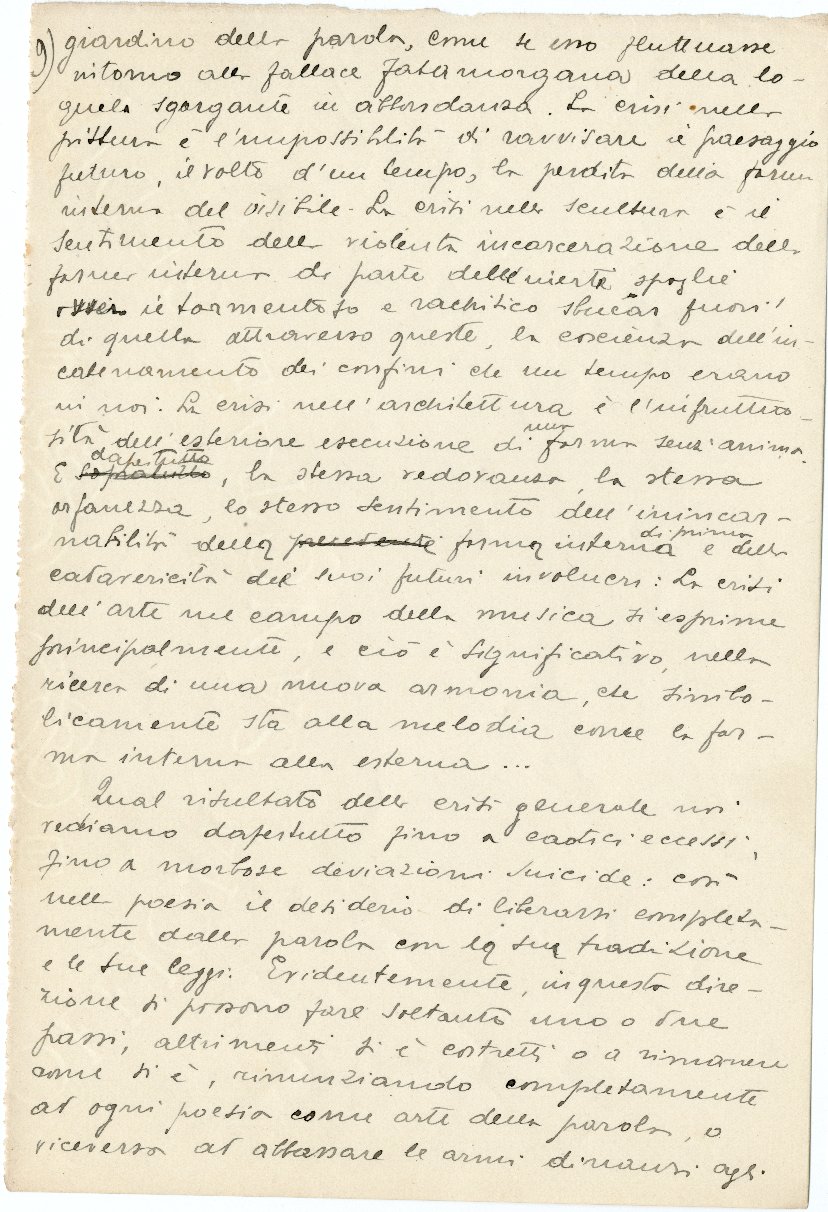 9) giardino della parola, come se esso fluttuasse
intorno alla fallace fatamorgana della lo-
quela sgorgante in abbondanza. La crisi nella
pittura è l'impossibilità di ravvisare il paesaggio
futuro, il volto d'un tempo, la perdita della forma
interna del visibile. La crisi nella scultura è il
sentimento della violenta incarcerazione della
forma interna da parte dell'inerte spoglie
ovvero il tormentoso e rachitico sbucar fuori
di quella attraverso queste, la coscienza dell'in-
catenamento dei confini che un tempo erano
in noi. La crisi nell'architettura è l'infruttuo-
sità dell'esteriore esecuzione di una forma senz'anima.
E sopratutto dapertutto, la stessa vedovanza, la stessa
orfanezza, lo stesso sentimento dell'inincar-
nabilità della precedente forma interna di prima e della
catavericità dei suoi futuri involucri: La crisi
dell'arte nel campo della musica si esprime
principalmente, e ciò è significativo, nella
ricerca di una nuova armonia, che simbo-
licamente sta alla melodia come la for-
ma interna alla esterna...
Qual risultato della crisi generale noi
vediamo dapertutto fino a caotici eccessi,
fino a morbose deviazioni suicide: così
nella poesia il desiderio di liberarsi completa-
mente dalla parola con la sua tradizione
e le sue leggi. Evidentemente, in questa dire-
zione si possono fare soltanto uno o due
passi, altrimenti si è costretti o a rimanere
come si è, rinunziando completamente
ad ogni poesia come arte della parola, o
viceversa ad abbassare le armi dinanzi agli